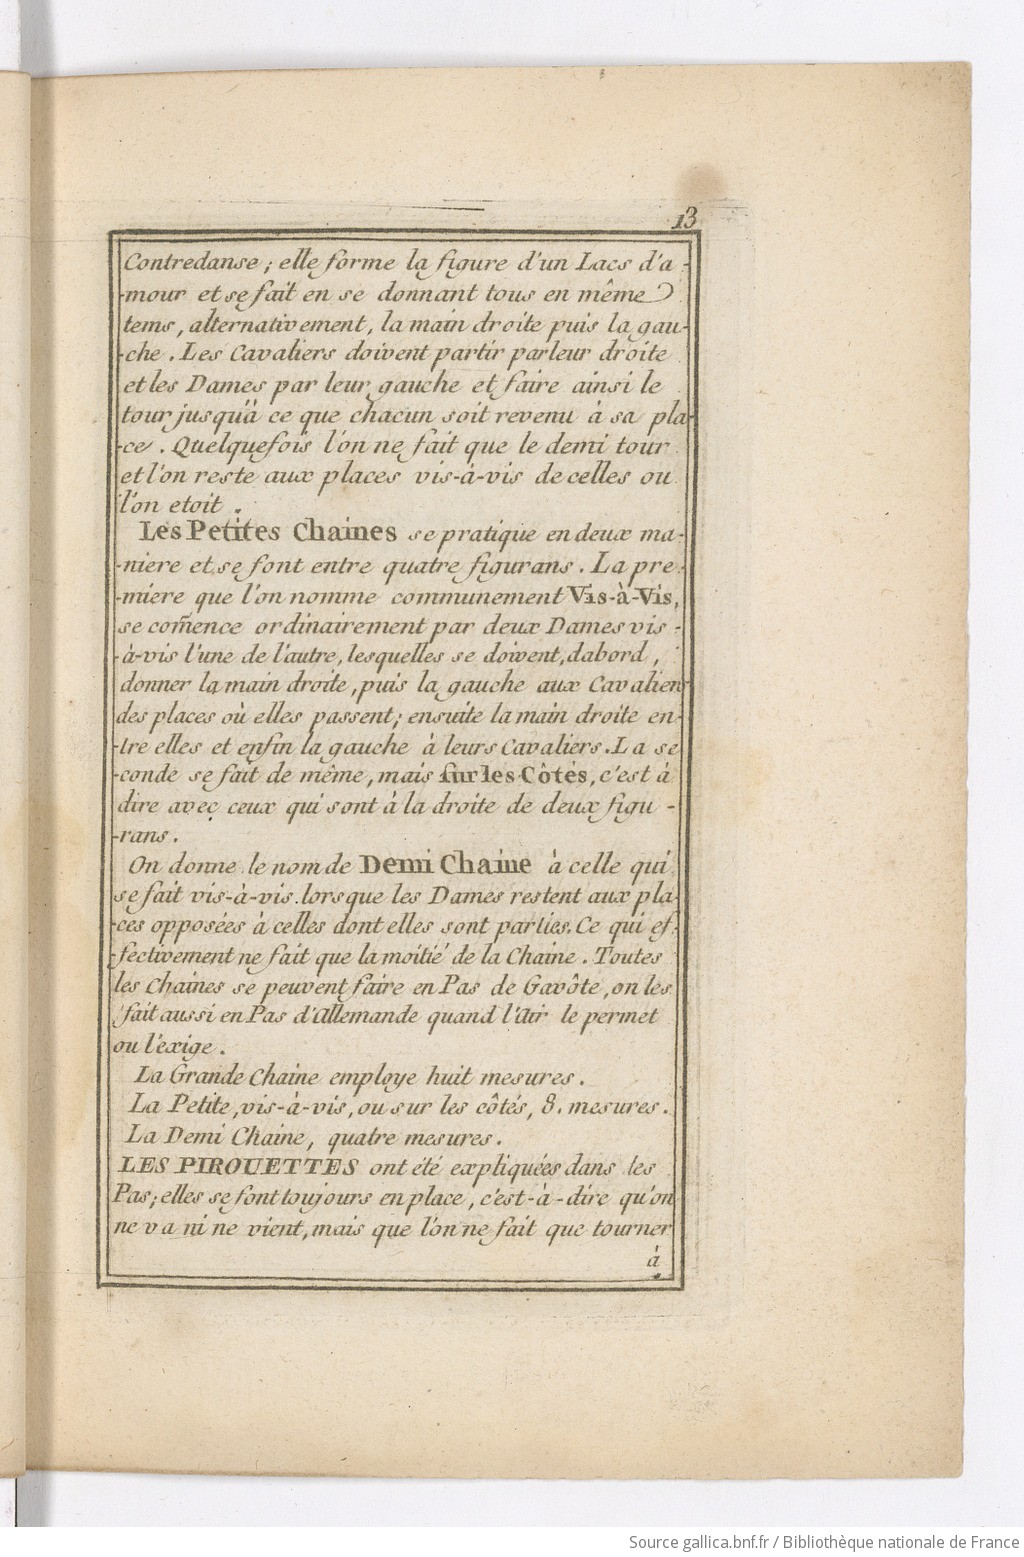 13
Contredanse; elle forme la figure d'un Lacs d'a-
-mour et se fait en se donnant tous en même
tems, alternativement, la main droite puis la gau-
-che. Les Cavaliers doivent partir par leur droite
et les Dames par leur gauche et faire ainsi le
tour jusqu'à ce que chacun soit revenu à sa pla-
-ce. Quelquefois l'on ne fait que le demi tour
et l'on reste aux places vis-à-vis de celles ou
l'on etoit.
Les Petites Chaines se pratique en deux ma-
-niere et se font entre quatre figurans. La pre-
-miere que l'on nomme communement Vis-à-Vis,
se com̄ence ordinairement par deux Dames vis-
-à-vis l'une de l'autre, lesquelles se doivent, dabord,
donner la main droite, puis la gauche aux Cavaliers
des places où elles passent; ensuite la main droite en-
-tre elles et enfin la gauche à leurs Cavaliers. La se
-conde se fait de même, mais sur les Côtés, c'est à
dire avec ceux qui sont à la droite de deux figu-
-rans.
On donne le nom de Demi Chaine à celle qui
se fait vis-à-vis. lorsque les Dames restent aux pla-
-ces opposées à celles dont elles sont parties. Ce qui ef-
-fectivement ne fait que la moitié de la Chaine. Toutes
les Chaines se peuvent faire en Pas de Gavôte, on les
fait aussi en Pas d'Allemande quand l'Air le permet
ou l'exige.
La Grande Chaine employe huit mesures.
La Petite, vis-à-vis, ou sur les côtés, 8. mesures.
La Demi Chaine, quatre mesures.
LES PIROUETTES ont été expliquées dans les
Pas; elles se font toujours en place, c'est-à-dire qu'on
ne va ni ne vient, mais que l'on ne fait que tourner
à
Source gallica.bnf.fr / Bibliothèque nationale de France